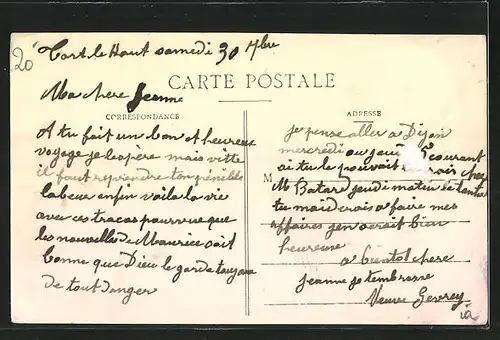 20
Tart le Haut samedi 30 7bre
CARTE POSTALE
Ma chere Jeanne
CORRESPONDANCE
A tu fait un bon et heureux
voyage je lespère mais vitte
il faut reprendre ton pénible
labeur enfin voila la vie
avec ces tracas pourvue que
les nouvelles de Maurice soit
bonne que Dieu le garde toujours
de tout danger
ADRESSE
je pense aller a Dijon
mercredi ou jeudi 5 courant
si tu le pouvait chez
M Batard jeudi matin
tu maiderais a faire mes
affaires jen serait bien
heureuse
a bientot chere
Jeanne je tembrasse
Veuve Gevrey